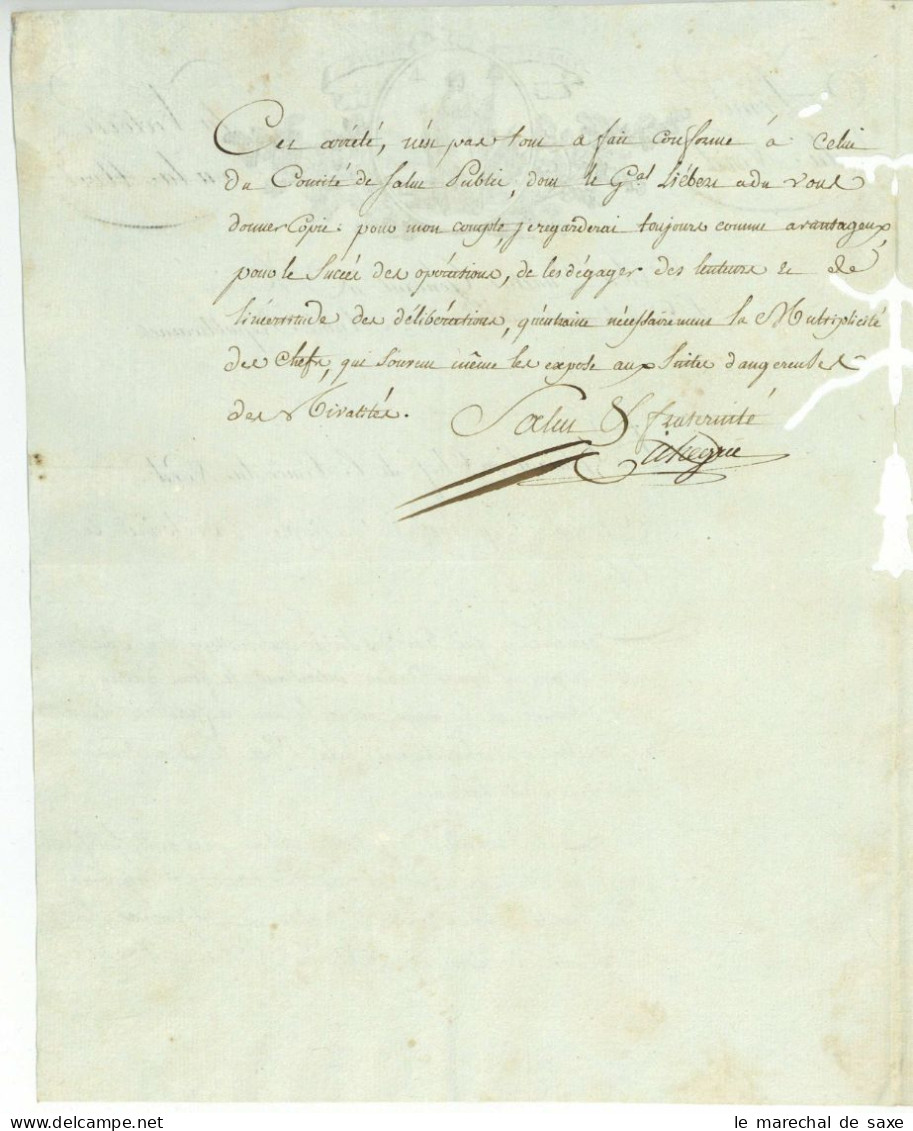 Cet arrété, n'ést pas tout a fait conforme à celui
du Comité de Salut Public, dont le Gal Liébert a du vous
donner Copie: pour mon compte, je regarderai toujours comme avantageux,
pour le Succés des opérations, de les dégager des lenteurs & de
l'incertitude des délibérations, qu'entraine nécessairement la Mutiplicité
des Chefs, qui souvent même les expose aux Suites dangereuses
des Rivalités.
Salut & fraternité
Pichegru
le marechal de saxe